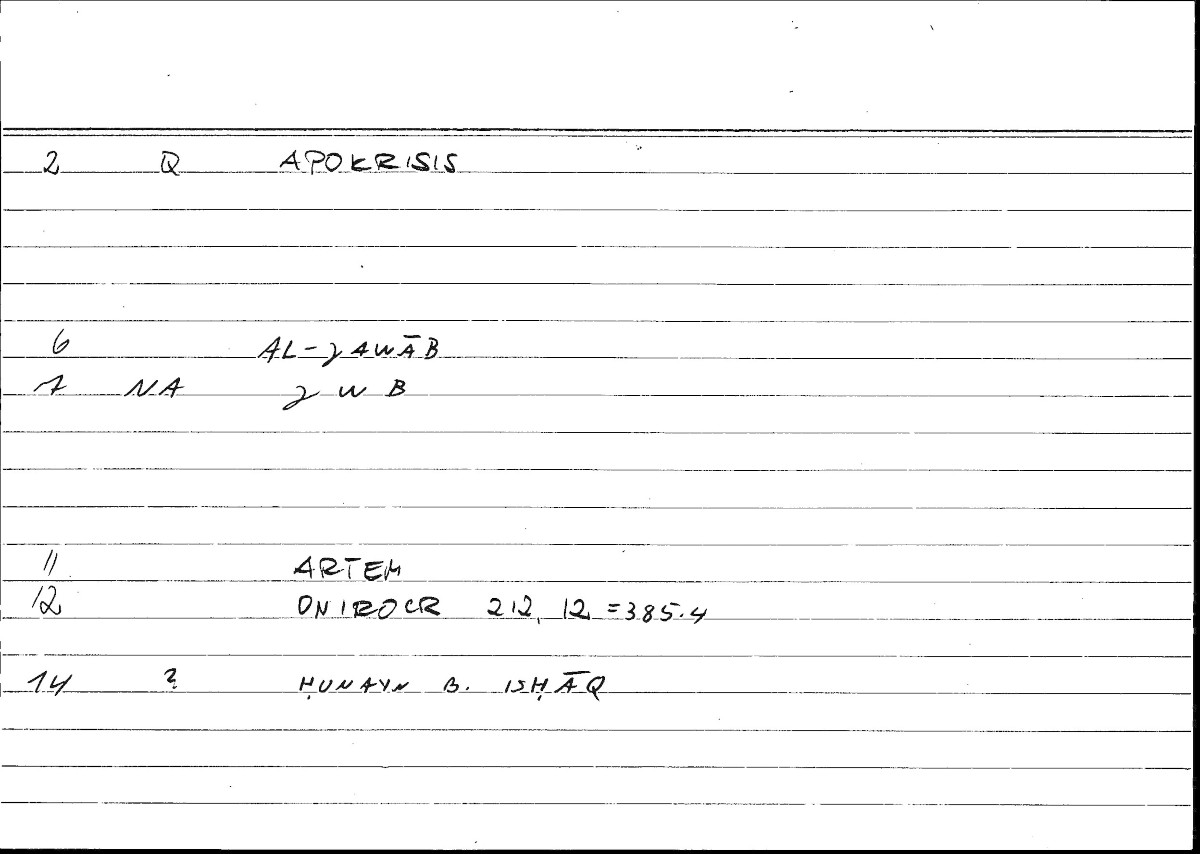 2 Q APOKRISIS
6 AL-ȷAWĀB
7 NA ȷ W B
11 ARTEM
12 ONIROCR 212, 12 = 385.4
14 ? ḤUNAYN B. ISḤĀQ